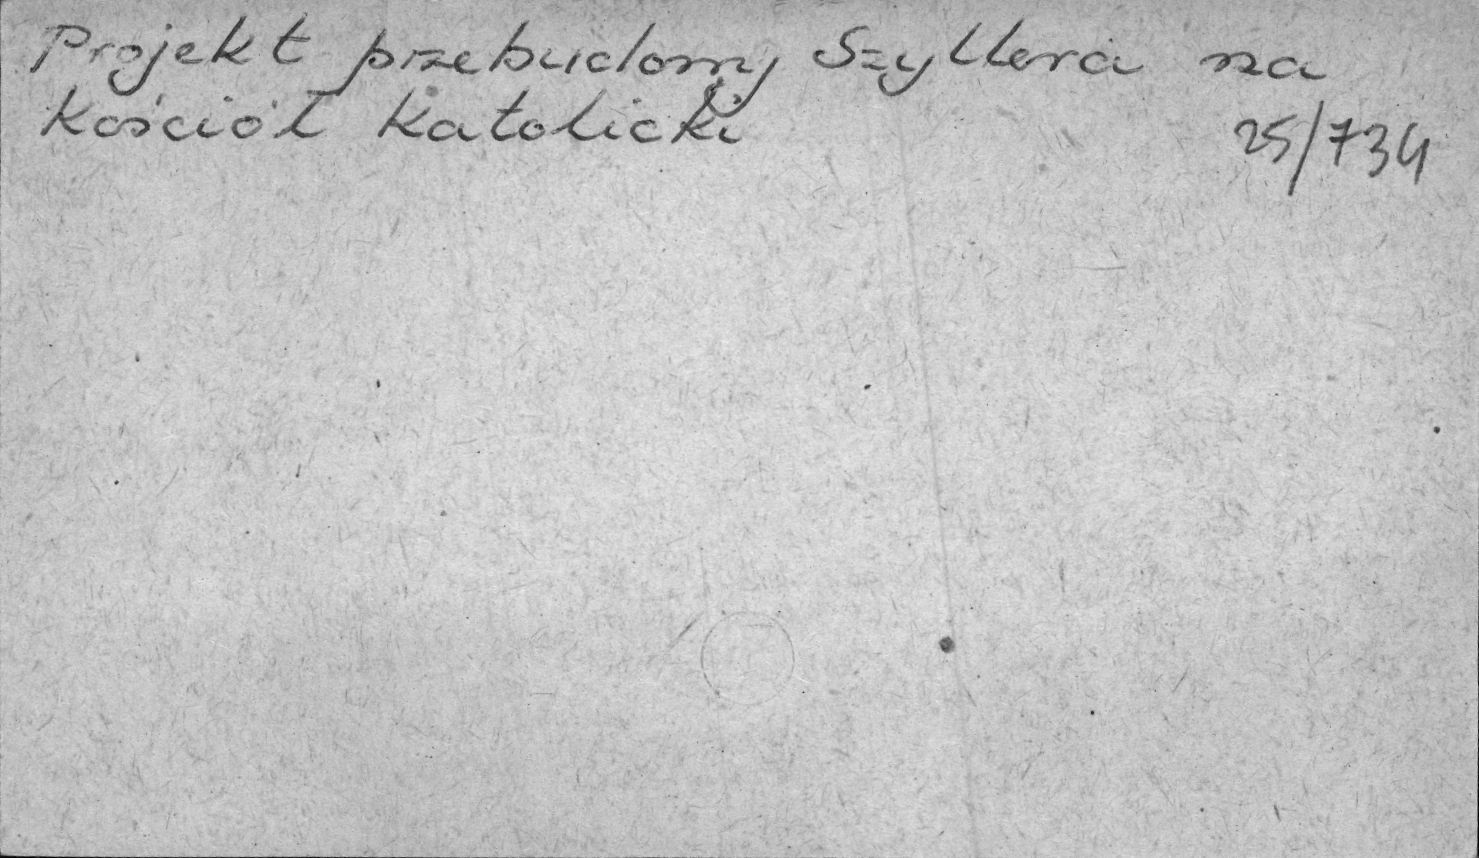 Projekt przebudowy Szyllera na
kościół katolicki
25/734